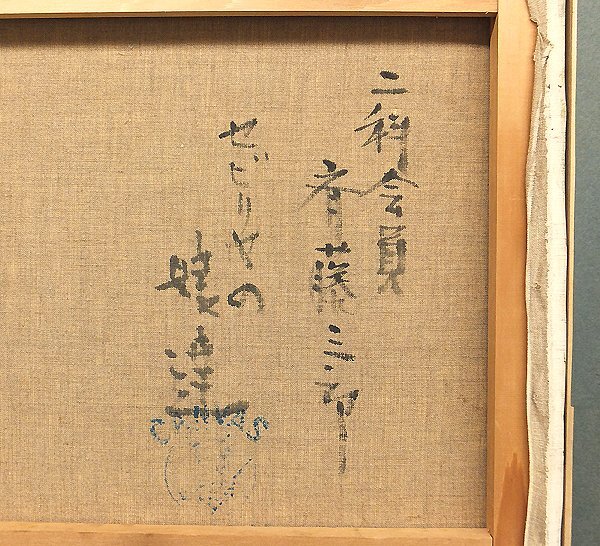 二科会員
斉藤三郎
セビリヤの
娘達
CANVAS